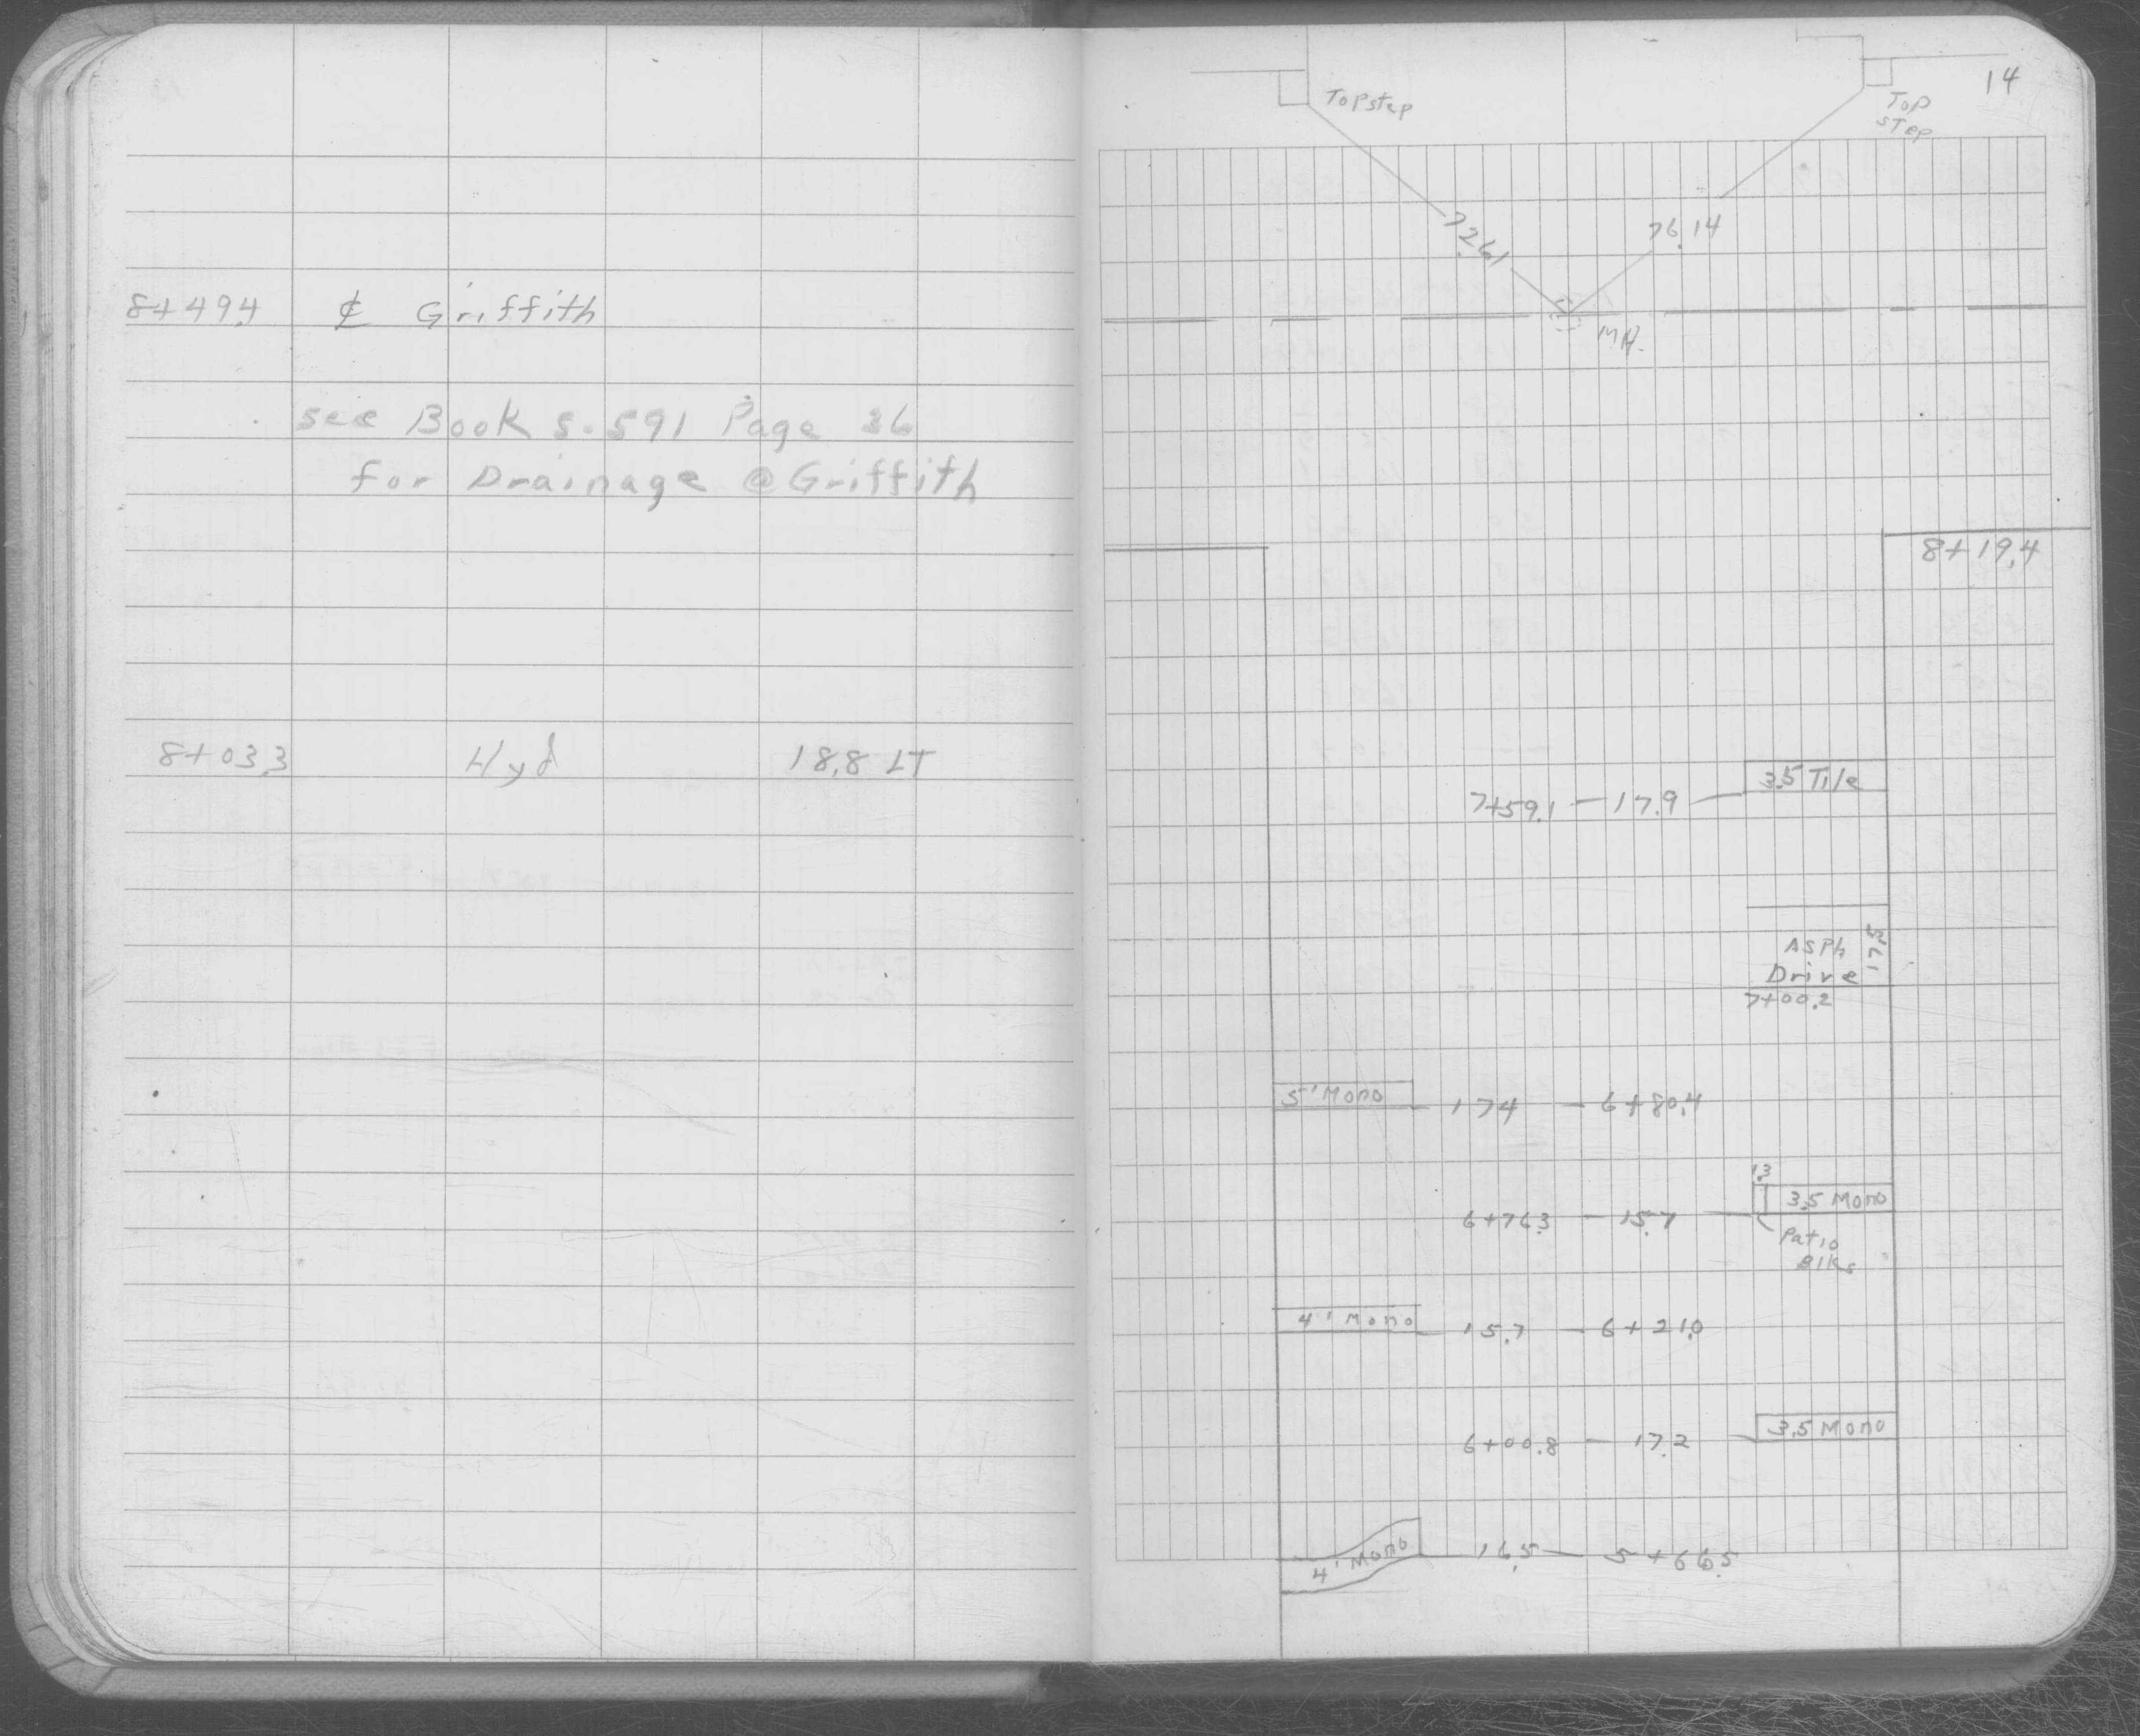 8+49.4 ℄ Griffith
see Book S-591 Page 36
for Drainage @ Griffith
8+03.3 Hyd 18.8 LT
14
Top step
Top
step
72.61
76.14
M.H.
8+19.4
7+59.1 — 17.9 — 3.5 Tile
Asph
Drive
17.5
7+00.2
5' Mono — 17.4 — 6+80.4
1.3
6+76.3 — 15.7 — 3.5 Mono
Patio
Blks
4' Mono — 15.7 — 6+21.0
6+00.8 — 17.2 — 3.5 Mono
4' Mono — 16.5 — 5+66.5